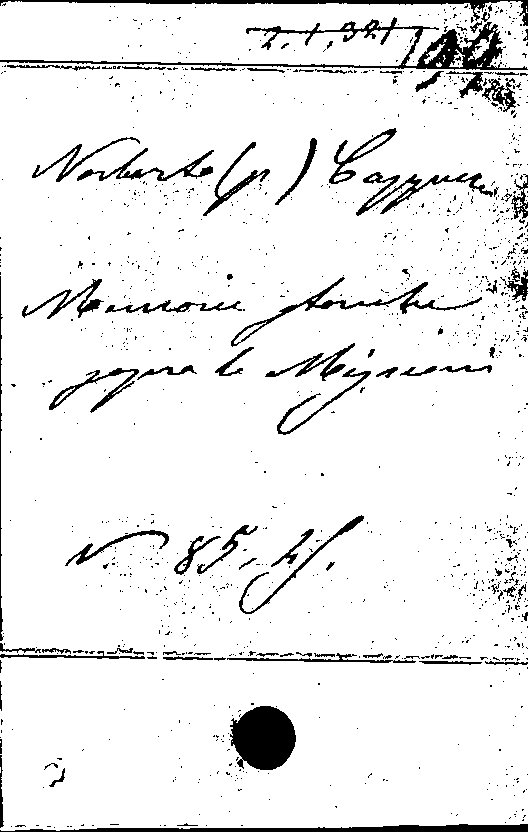 2.1.321
199
Norberto (p.) Cappucc.
Memorie storiche
sopra le Missioni
V. 85. 2 f.